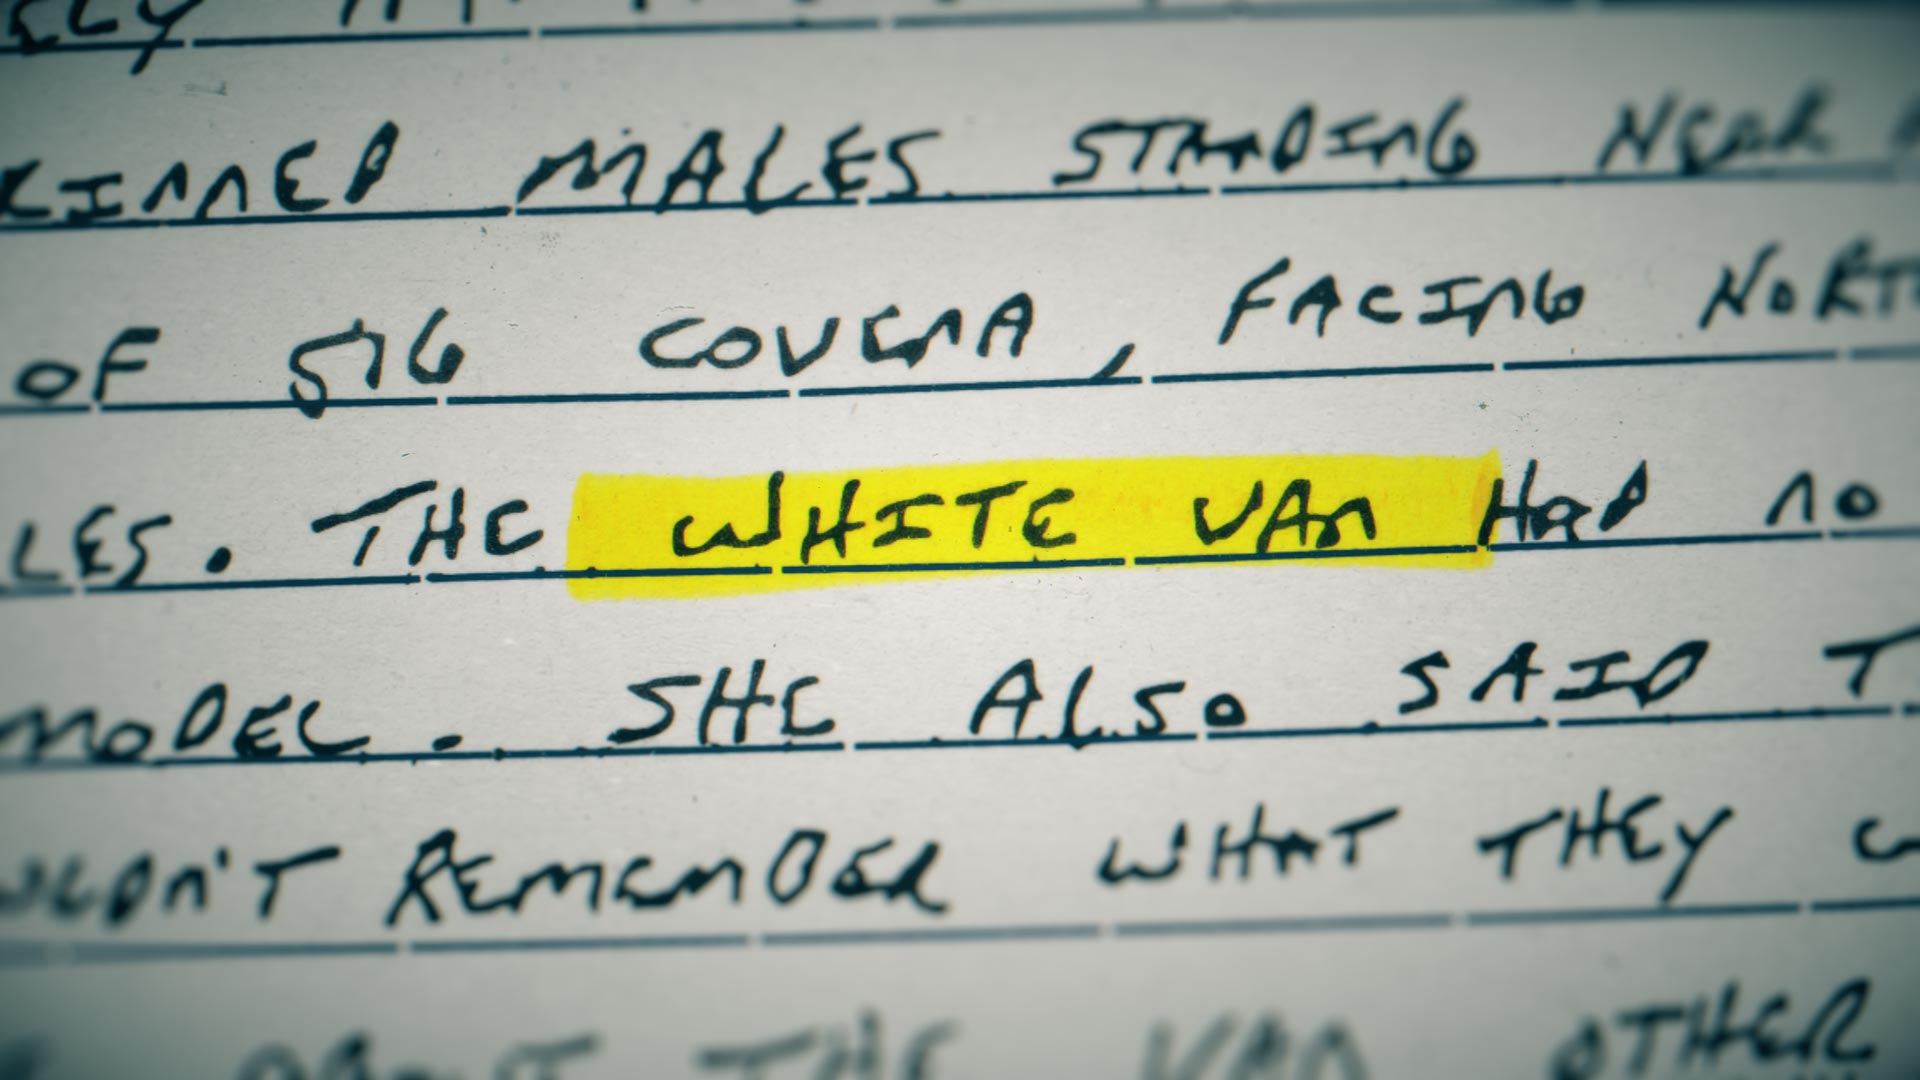 KINNED MALES STANDING NEAR
OF 516 COVENA, FACING NORT
LES. THE WHITE VAN HAD NO
MODEL. SHE ALSO SAID T
ULDN'T REMEMBER WHAT THEY
THE VAN OTHER